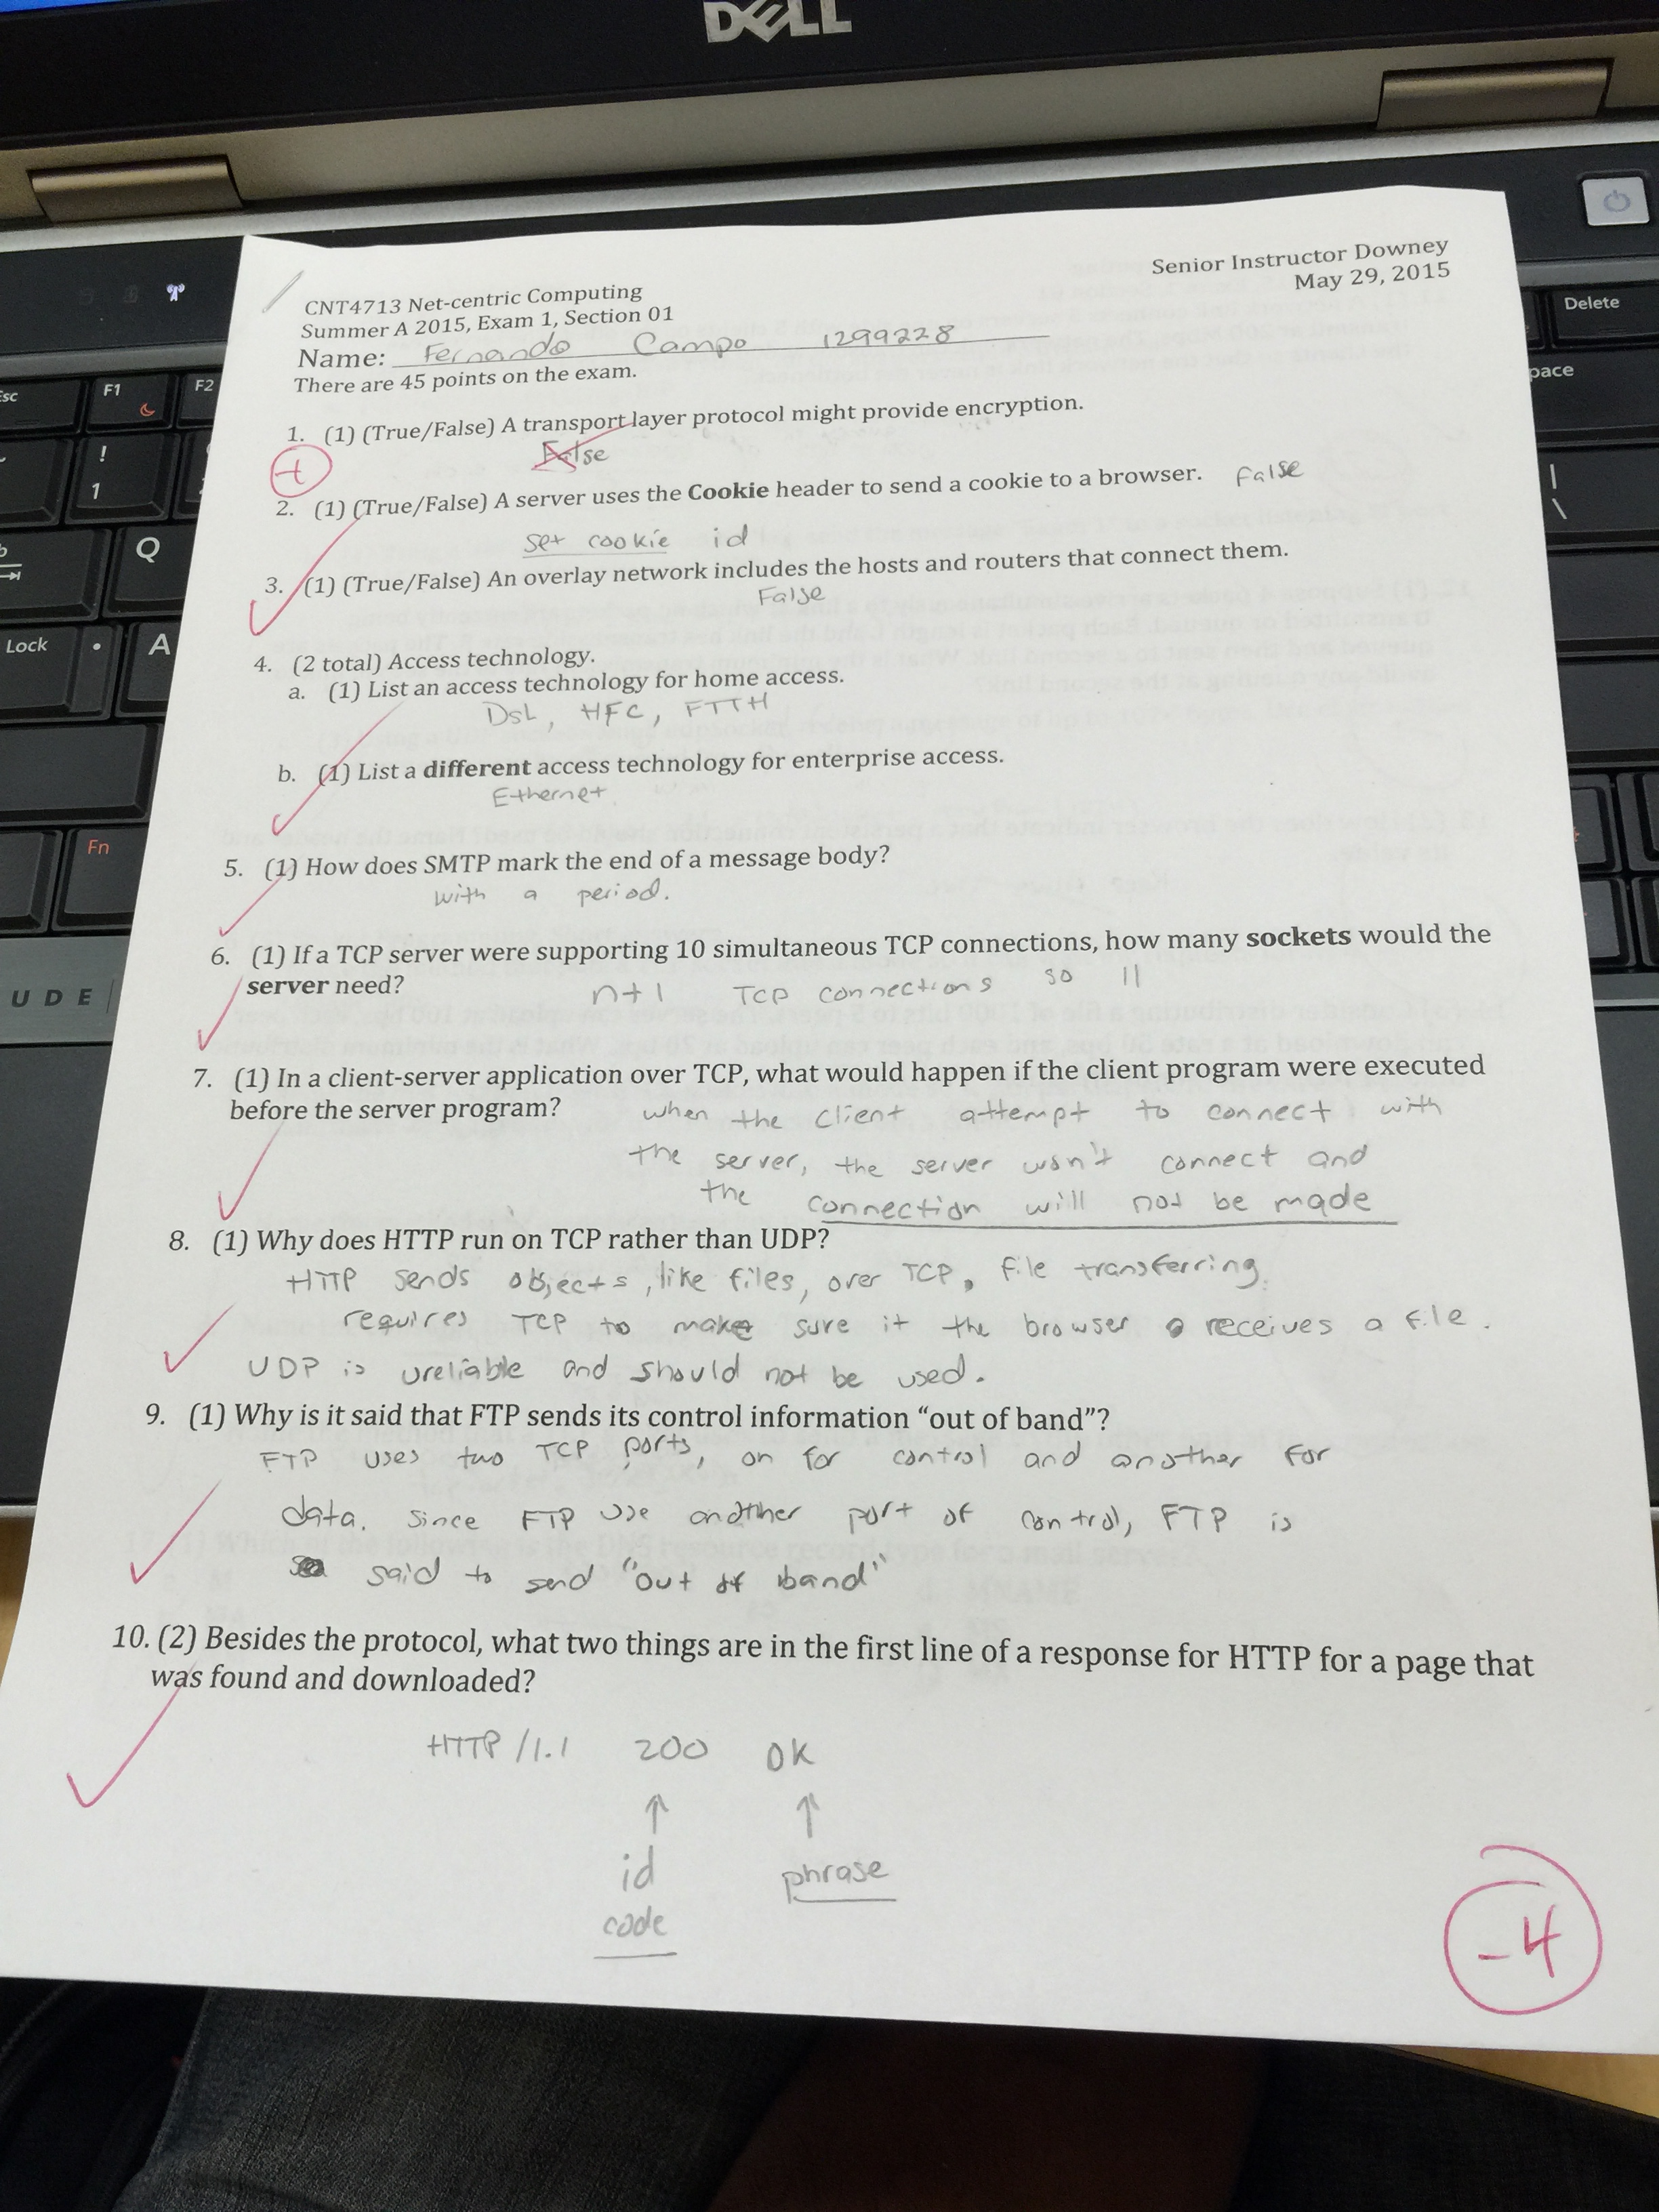 DELL
Senior Instructor Downey
May 29, 2015
CNT4713 Net-centric Computing
Summer A 2015, Exam 1, Section 01
Name: Fernando Campo 1299228
There are 45 points on the exam.
1. (1) (True/False) A transport layer protocol might provide encryption.
False
2. (1) (True/False) A server uses the Cookie header to send a cookie to a browser. False
set cookie id
3. (1) (True/False) An overlay network includes the hosts and routers that connect them.
False
4. (2 total) Access technology.
a. (1) List an access technology for home access.
DSL, HFC, FTTH
b. (1) List a different access technology for enterprise access.
Ethernet
5. (1) How does SMTP mark the end of a message body?
with a period.
6. (1) If a TCP server were supporting 10 simultaneous TCP connections, how many sockets would the
server need? n+1 TCP connections so 11
7. (1) In a client-server application over TCP, what would happen if the client program were executed
before the server program? when the client attempt to connect with
the server, the server won't connect and
the connection will not be made
8. (1) Why does HTTP run on TCP rather than UDP?
HTTP sends objects, like files, over TCP, file transferring
requires TCP to make sure it the browser receives a file.
UDP is ureliable and should not be used.
9. (1) Why is it said that FTP sends its control information “out of band”?
FTP uses two TCP ports, on for control and another for
data. Since FTP use another port of control, FTP is
said to send "out of band"
10. (2) Besides the protocol, what two things are in the first line of a response for HTTP for a page that
was found and downloaded?
HTTP/1.1 200 OK
id phrase
code
-4
Esc
F1
F2
!
1
Q
Lock
A
Fn
UDE
Delete
pace
|
\